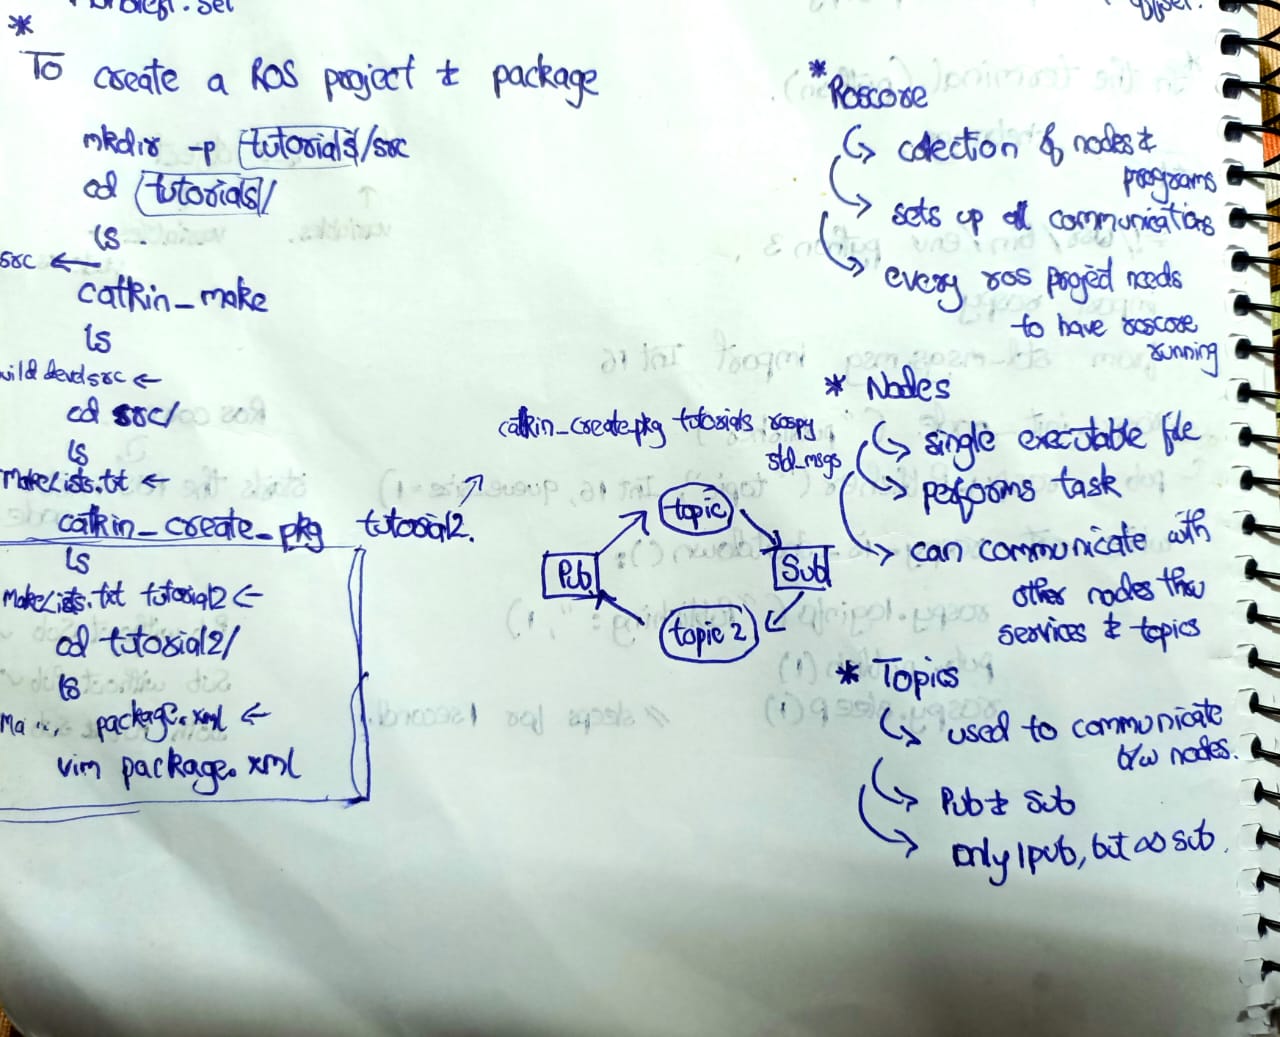 *
To create a ROS project & package
mkdir -p tutorials/src
cd tutorials/
ls
src ←
catkin_make
ls
devel src ←
cd src/
ls
MakeLists.txt ←
catkin_create_pkg tutorial2.
ls
MakeLists.txt tutorial2 ←
cd tutorial2/
ls
package.xml ←
vim package.xml
catkin_create_pkg tutorials rospy
std_msgs
topic
Pub
Sub
topic 2
* Roscore
colection of nodes &
programs
sets up all communications
every ros project needs
to have roscore
running
* Nodes
single executable file
performs task
can communicate with
other nodes thru
services & topics
* Topics
used to communicate
b/w nodes.
Pub & Sub
only 1 pub, but ∞ sub.